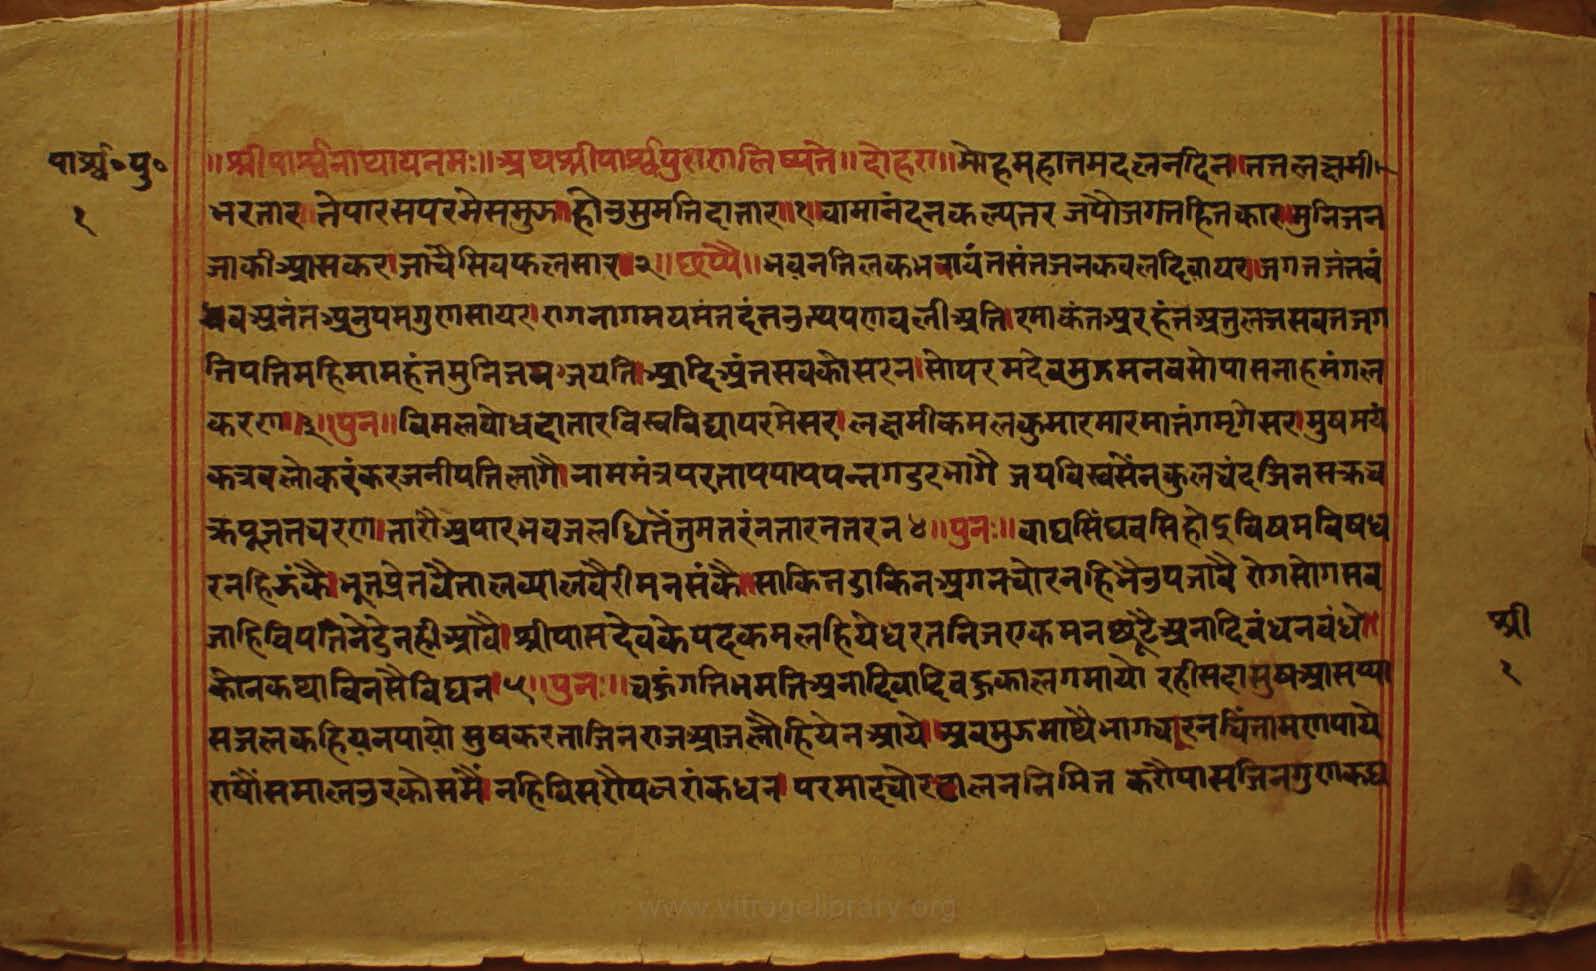 पार्श्व॰पु॰
१
॥श्रीपार्श्वनाथायनमः॥अथश्रीपार्श्वपुराणलिष्यते॥दोहरा॥मोहमहातमदलनदिन।तपलछमी
भरतार।तेपारसपरमेसमुझ।होउसुमतिदातार॥१॥वामानंदनकल्पतर जपौजगतहितकार।मुनिजन
जाकीआसकर।जाचैसिवफलसार॥२॥छप्पै॥भवनतिलकभगवंतसंतजनकवलदिवायर।जगतजंतबं
धवअनंतअनुपमगुणसायर।रागनागमयमंतदंतउत्थपणवलीअति।रमाकंतअरहंतअतुलजसवंतजग
तिपतिमहिमामहंतमुनिजनजपतिआदिअंतसबकोसरन।सोपरमदेवमुझमनवसोपासनाहमंगल
करण॥३॥पुन॥विमलबोधदातारविस्वविद्यापरमेसर।लछमीकमलकुमारमारमातंगमृगेसर।मुषमयं
कअवलोकरंकरजनीपतिलागै।नाममंत्रपरतापपापपन्नगडरभागै जयविस्वसेंनकुलचंदजिनसक्रच
क्रपूजतचरण।तारौअपारभवजलधितेंतुमतरंनतारनतरन४॥पुनः॥बाघसिंघवसिहोइविषमविषध
रनहिडंकै।भूतप्रेतवैतालव्यालवैरीमनसंकै॥साकिनडाकिनअगनचोरनहिभैउपजावै रोगसोगसब
जाहिविपतिनेडेनहीआवै।श्रीपासदेवकेपदकमलहियेधरतनिजएकमनछूटैअनादिबंधनबंधे॥
कोनकथाविनसैविघन।५॥पुनः॥चहुंगतिभमतिअनादिवादिबहुकालगमायो रहीसदासुषआसप्या
सजलकहियनपायो सुषकरताजिनराजआजलौहियेनआये।अबमुझमाथैभागचरनचिंतामणपाये
राषौंसंभालउरकोसमैं।नहिविसरौपलरांकधन।परमादचोरटालननिमित करौपासजिनगुणकथ
श्री
१
www.vitragelibrary.org